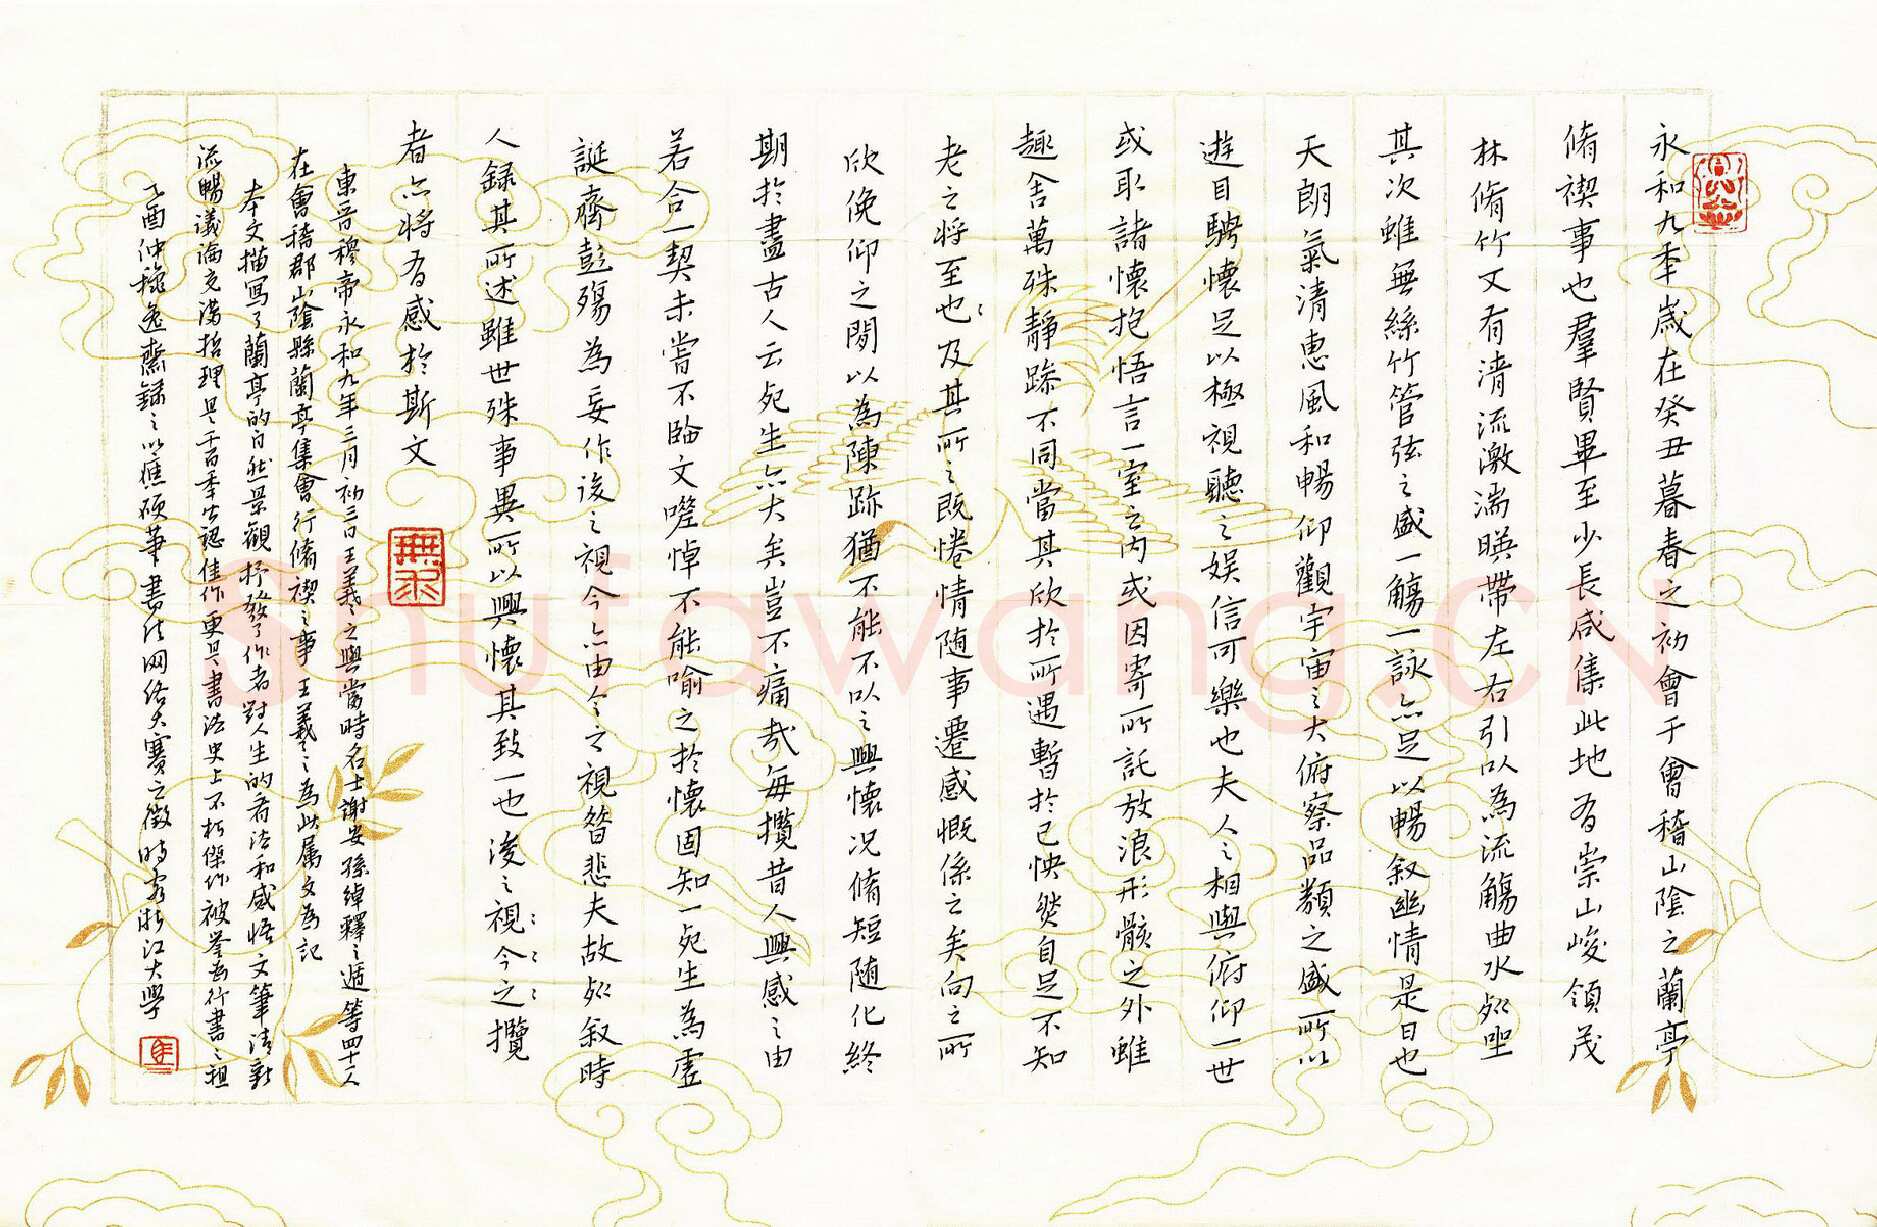 永和九年歲在癸丑暮春之初會于會稽山陰之蘭亭
脩禊事也羣賢畢至少長咸集此地有崇山峻領茂
林脩竹又有清流激湍暎帶左右引以為流觴曲水列坐
其次雖無絲竹管弦之盛一觴一詠亦足以暢叙幽情是日也
天朗氣清惠風和暢仰觀宇宙之大俯察品類之盛所以
遊目騁懷足以極視聽之娛信可樂也夫人之相與俯仰一世
或取諸懷抱悟言一室之內或因寄所託放浪形骸之外雖
趣舍萬殊靜躁不同當其欣於所遇暫於己怏然自足不知
老之將至也及其所之既惓情随事遷感慨係之矣向之所
欣俛仰之間以為陳跡猶不能不以之興懷況脩短随化終
期於盡古人云死生亦大矣豈不痛哉每攬昔人興感之由
若合一契未嘗不臨文嗟悼不能喻之於懷固知一死生為虛
誕齊彭殤為妄作後之視今亦由今之視昔悲夫故列叙時
人録其所述雖世殊事異所以興懷其致一也後之視今之攬
者亦將有感於斯文
無求
東晋穆帝永和九年三月初三日王羲之與當時名士謝安孫綽釋之遁等四十人
在會稽郡山陰縣蘭亭集會行脩禊之事王羲之為此属文為記
本文描寫了蘭亭的自然景觀抒發了作者對人生的看法和感悟文筆清新
流暢議論充滿哲理是千百年公認佳作更是書法史上不朽傑作被誉為行書之祖
乙酉仲逸齋録之以應硕筆書法网络大賽之徵時客浙江大學
shufawang.CN